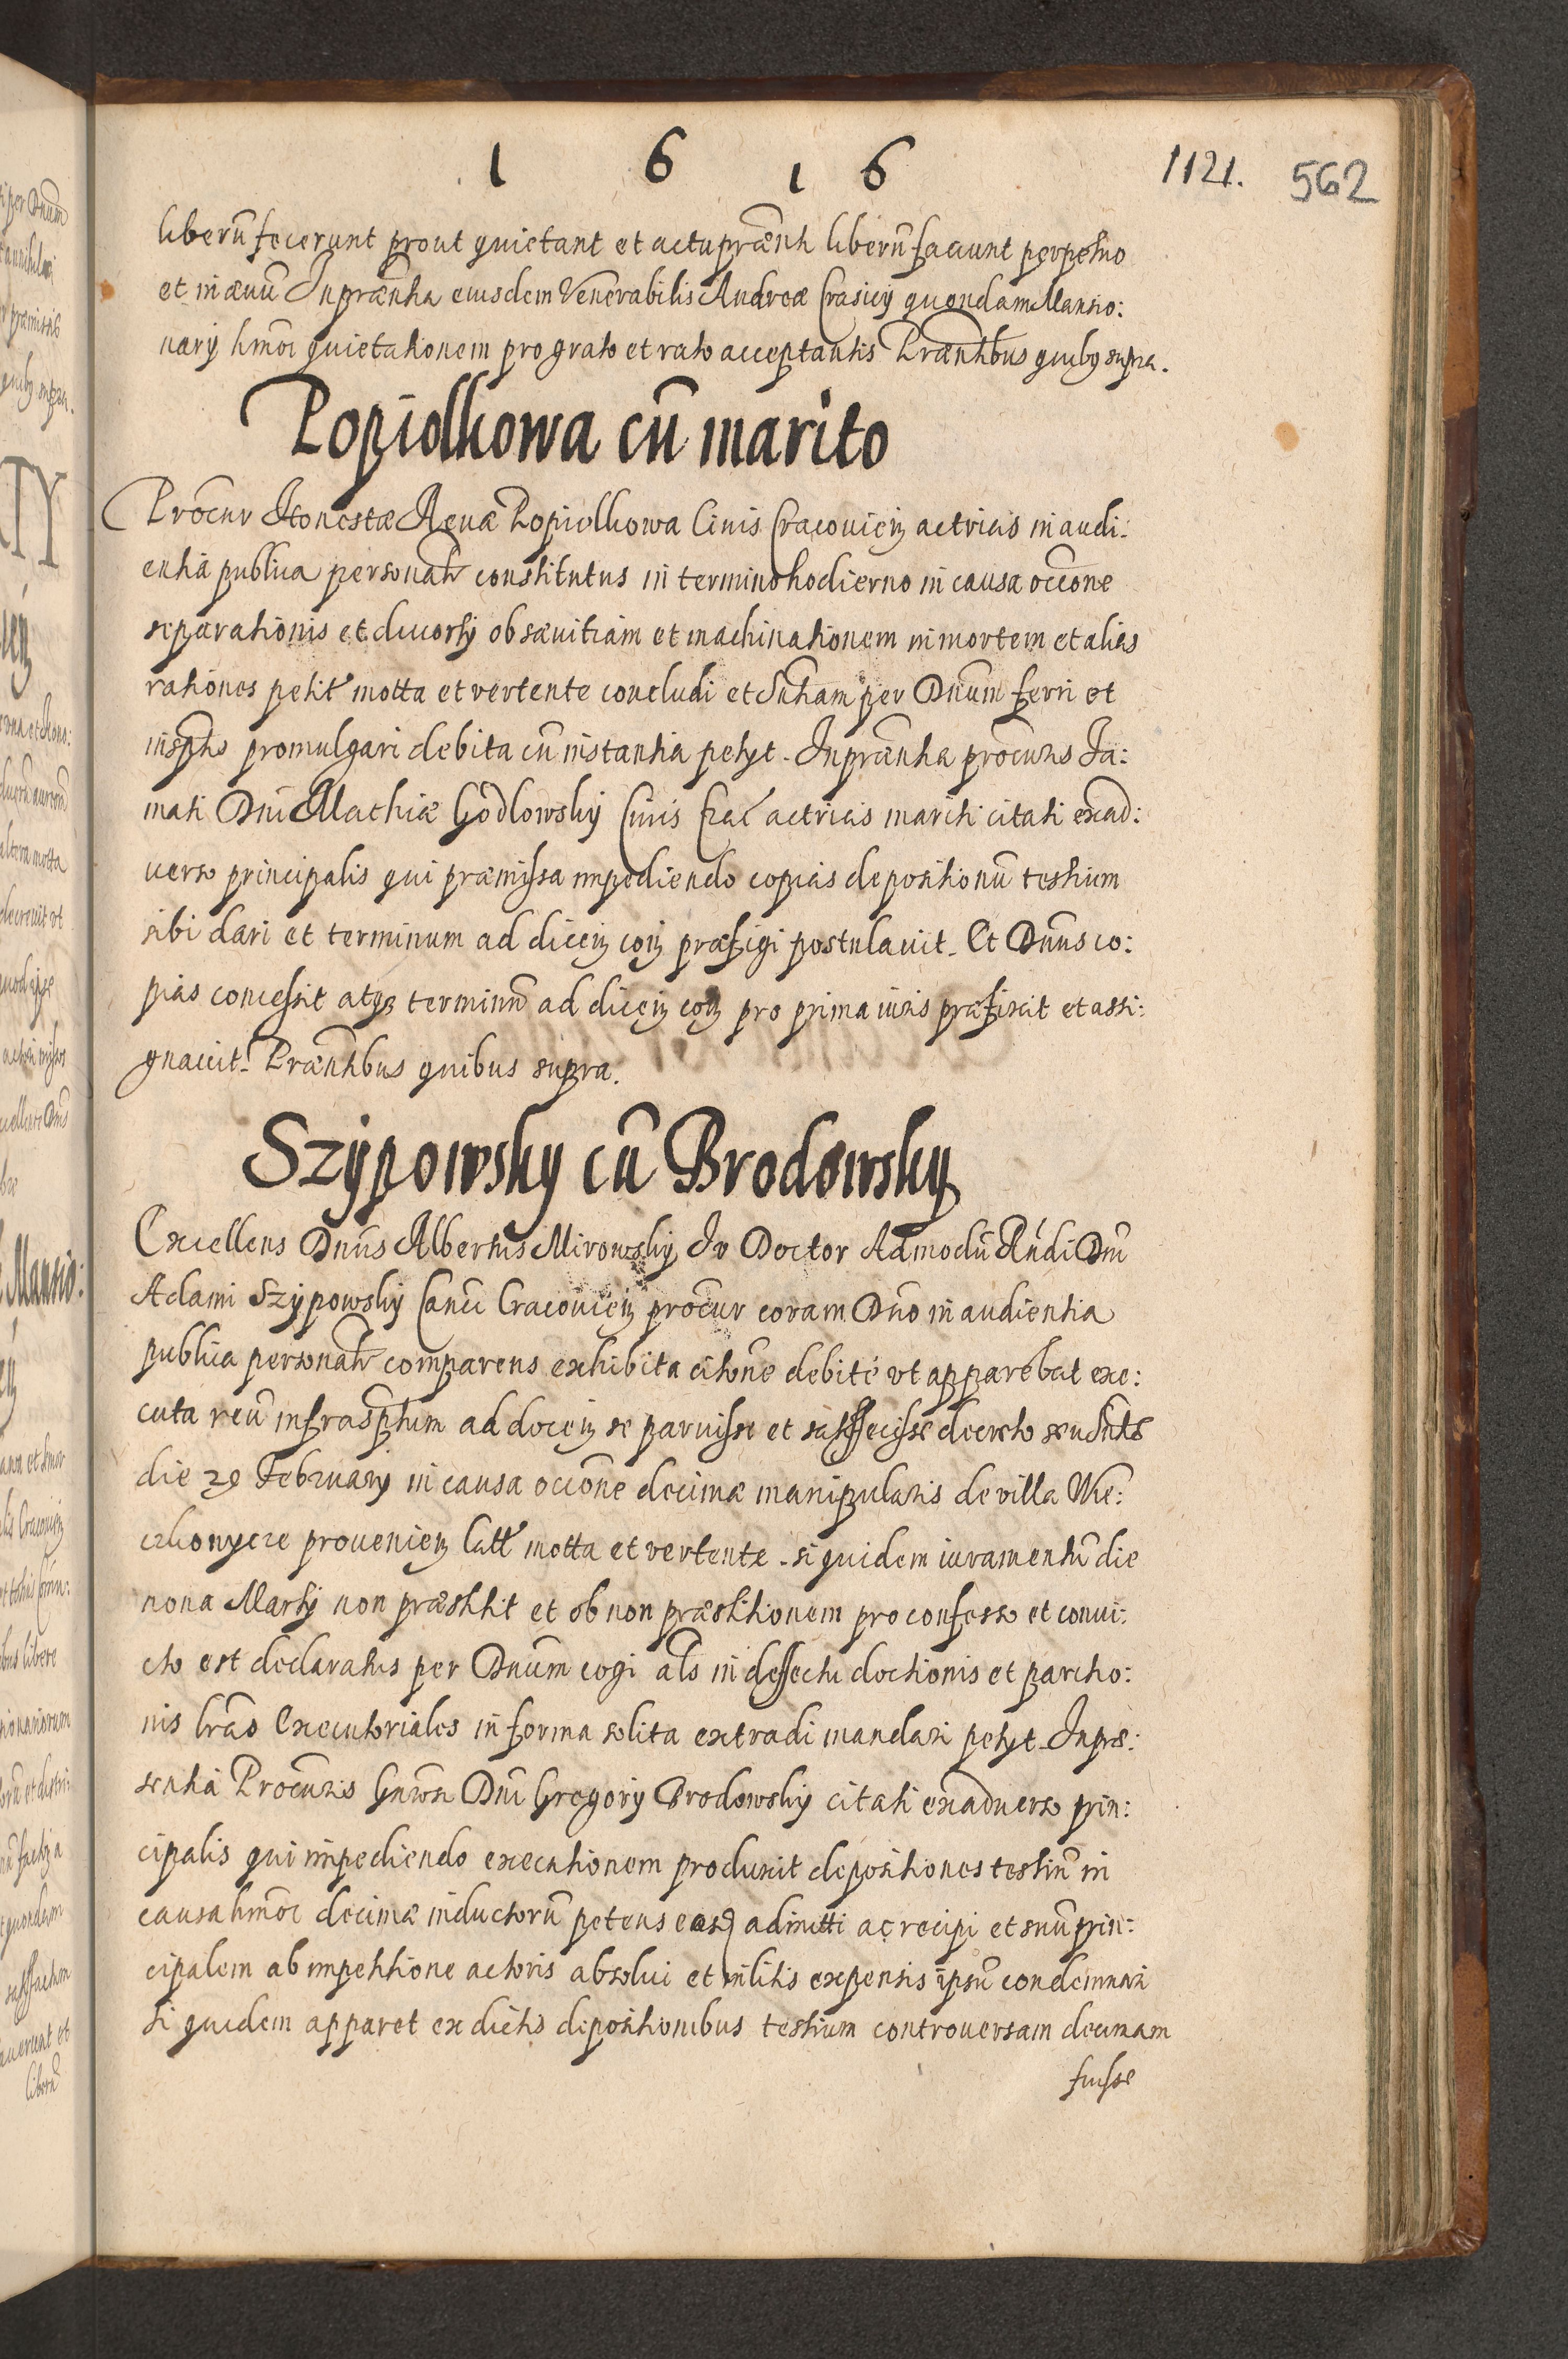 1 6 1 6 1121. 562
liberũ fecerunt prout quietant et actu præñti liberũ faciunt perpetuo
et in æuũ In præñtia eiusdem Venerabilis Andreæ Crasicy quondam Mansio:
narÿ hmõi quietationem pro grato et rato acceptantis Præñtibus quibꝰ supra.
Popiolkowa cũ marito
Procur̃ Honestæ Aeuæ Popiolkowa Ciuis Cracouieñ actricis in audi:
entia publica personalr̃ constitutus in termino hodierno in causa occõne
separationis et diuortÿ ob sæuitiam et machinationem in mortem et alias
rationes petit motta et vertente concludi et sñtiam per Dnũm ferri et
in sp̃tis promulgari debita cũ instantia petyt. In præñtia procuris Fa:
mati Dnĩ Mathiæ Godlowsky Ciuis Crac̃ actricis mariti citati exad:
uerso principalis qui præmissa impediendo copias depositionũ testium
sibi dari et terminum ad diceñ coñ præfigi postulauit. Et Dnũs co:
pias concessit atqꝫ terminũ ad diceñ coñ pro prima iuris præfixit et assi:
gnauit. Præñtibus quibus supra.
Szÿpowsky cũ Brodowsky
Excellens Dnũs Albertus Mirowsky Iv Doctor Admodũ Rndi Dnĩ
Adami Szÿpowsky Canci Cracouieñ procur̃ coram Dnõ in audientia
publica personalr̃ comparens exhibita citõne debitè vt apparebat exe:
cuta reũ infrasp̃tum ad doceñ se paruisse et satisfecisse decreto seu sñtæ
die 29 Februarÿ in causa occõne decimæ manipularis de villa Wie:
czkonycze prouenieñ latt motta et vertente. siquidem iuramentũ die
nona Martÿ non præstitit et ob non præstitionem pro confesso et conui:
cto est declaratus per Dnũm cogi als in deffectu doctionis et paritio:
nis lrãs Executoriales in forma solita extradi mandari petyt. In præ:
sentia Procuris Gnõsi Dnĩ Gregorÿ Brodowsky citati exaduerso prin:
cipalis qui impediendo executionem produxit depositiones testiũ in
causa hmõi decimæ inductorũ petens easd admitti ac recipi et suũ prin:
cipalem ab impetitione actoris absolui et in litis expensis ipsũ condemnari
si quidem apparet ex dictis depositionibus testium controuersam decimam
fuisse